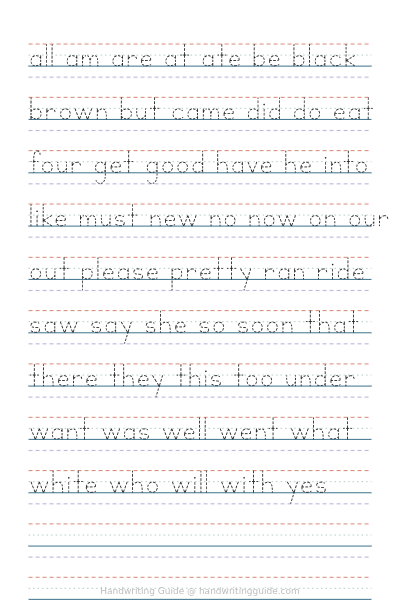 all am are at ate be black
brown but came did do eat
four get good have he into
like must new no now on our
out please pretty ran ride
saw say she so soon that
there they this too under
want was well went what
white who will with yes
Handwriting Guide @ handwritingguide.com